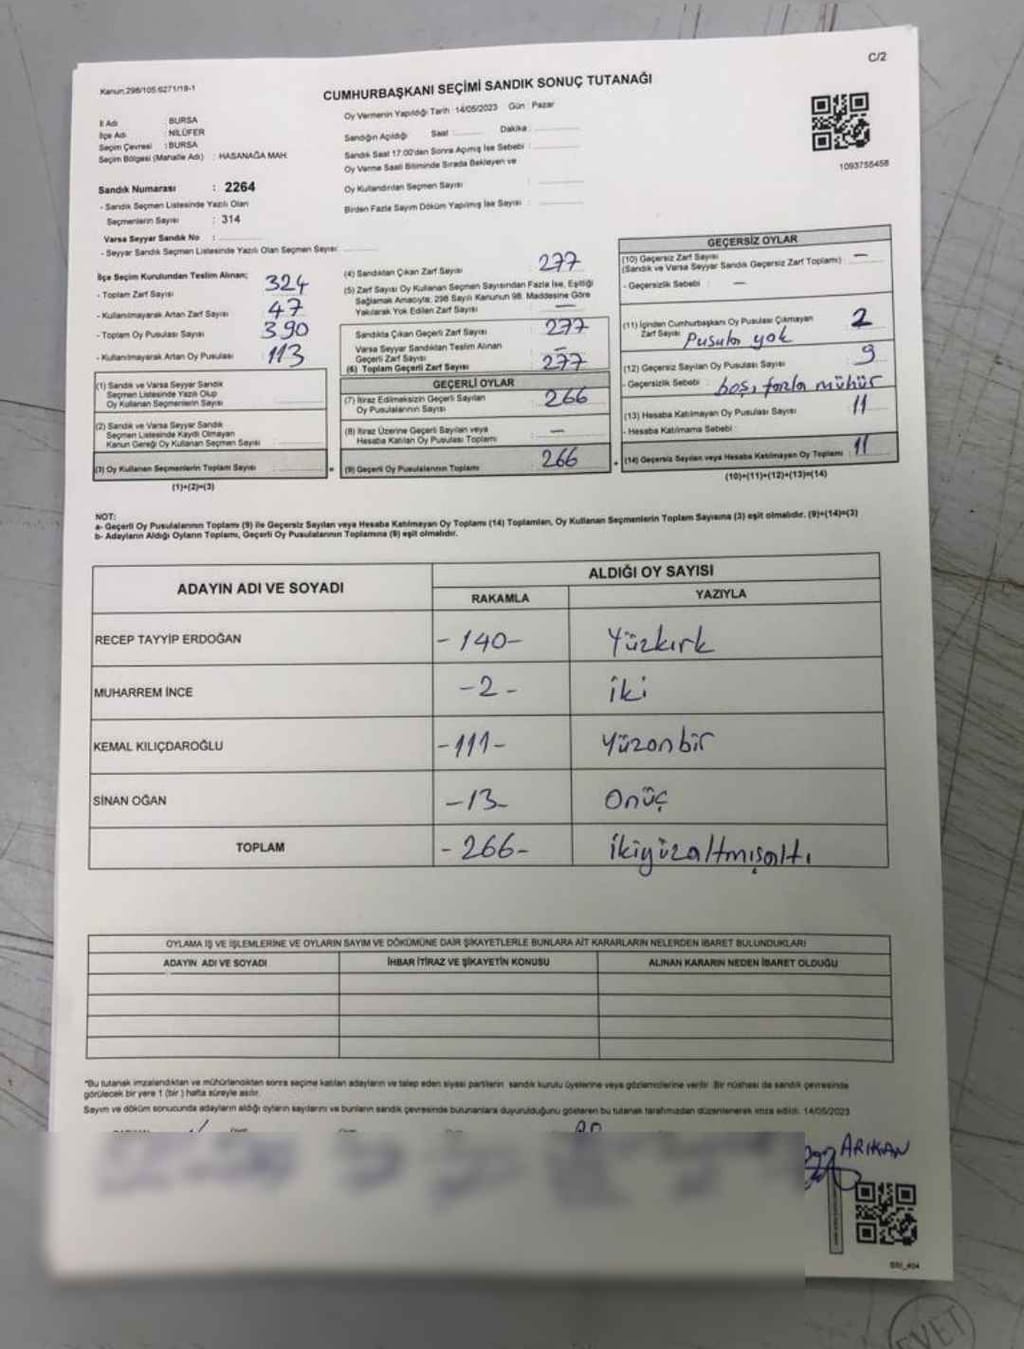 C/2
Kanun:298/105 6271/18-1
CUMHURBAŞKANI SEÇİMİ SANDIK SONUÇ TUTANAĞI
İl Adı : BURSA
İlçe Adı : NİLÜFER
Seçim Çevresi : BURSA
Seçim Bölgesi (Mahalle Adı) : HASANAĞA MAH.
Sandık Numarası : 2264
- Sandık Seçmen Listesinde Yazılı Olan
Seçmenlerin Sayısı : 314
Varsa Seyyar Sandık No :
- Seyyar Sandık Seçmen Listesinde Yazılı Olan Seçmen Sayısı:
Oy Vermenin Yapıldığı Tarih : 14/05/2023 Gün : Pazar
Sandığın Açıldığı Saat Dakika :
Sandık Saat 17:00'den Sonra Açımış İse Sebebi :
Oy Verme Saati Bitiminde Sırada Bekleyen ve
Oy Kullandırılan Seçmen Sayısı :
Birden Fazla Sayım Döküm Yapılmış İse Sayısı :
1093755458
İlçe Seçim Kurulundan Teslim Alınan;
- Toplam Zarf Sayısı 324
- Kullanılmayarak Artan Zarf Sayısı 47
- Toplam Oy Pusulası Sayısı 390
- Kullanılmayarak Artan Oy Pusulası : 113
(1) Sandık ve Varsa Seyyar Sandık
Seçmen Listesinde Yazılı Olup
Oy Kullanan Seçmenlerin Sayısı
(2) Sandık ve Varsa Seyyar Sandık
Seçmen Listesinde Kaydı Olmayan
Kanun Gereği Oy Kullanan Seçmen Sayısı :
(3) Oy Kullanan Seçmenlerin Toplam Sayısı :
(1)+(2)=(3)
(4) Sandıktan Çıkan Zarf Sayısı : 277
(5) Zarf Sayısı Oy Kullanan Seçmen Sayısından Fazla İse, Eşitliği
Sağlamak Amacıyla; 298 Sayılı Kanunun 98. Maddesine Göre
Yakılarak Yok Edilen Zarf Sayısı : —
Sandıkta Çıkan Geçerli Zarf Sayısı : 277
Varsa Seyyar Sandıktan Teslim Alınan
Geçerli Zarf Sayısı : —
(6) Toplam Geçerli Zarf Sayısı : 277
GEÇERLİ OYLAR
(7) İtiraz Edilmeksizin Geçerli Sayılan
Oy Pusulalarının Sayısı : 266
(8) İtiraz Üzerine Geçerli Sayılan veya
Hesaba Katılan Oy Pusulası Toplamı : —
(9) Geçerli Oy Pusulalarının Toplamı : 266
GEÇERSİZ OYLAR
(10) Geçersiz Zarf Sayısı
(Sandık ve Varsa Seyyar Sandık Geçersiz Zarf Toplamı) : —
- Geçersizlik Sebebi : —
(11) İçinden Cumhurbaşkanı Oy Pusulası Çıkmayan
Zarf Sayısı : 2
Pusula yok
(12) Geçersiz Sayılan Oy Pusulası Sayısı : 9
- Geçersizlik Sebebi : boş, fazla mühür
(13) Hesaba Katılmayan Oy Pusulası Sayısı : 11
- Hesaba Katılmama Sebebi :
(14) Geçersiz Sayılan veya Hesaba Katılmayan Oy Toplamı : 11
(10)+(11)+(12)+(13)=(14)
NOT:
a- Geçerli Oy Pusulalarının Toplamı (9) ile Geçersiz Sayılan veya Hesaba Katılmayan Oy Toplamı (14) Toplamları, Oy Kullanan Seçmenlerin Toplam Sayısına (3) eşit olmalıdır. (9)+(14)=(3)
b- Adayların Aldığı Oyların Toplamı, Geçerli Oy Pusulalarının Toplamına (9) eşit olmalıdır.
ADAYIN ADI VE SOYADI ALDIĞI OY SAYISI
RAKAMLA YAZIYLA
RECEP TAYYİP ERDOĞAN -140- Yüzkırk
MUHARREM İNCE -2- iki
KEMAL KILIÇDAROĞLU -111- Yüzonbir
SİNAN OĞAN -13- Onüç
TOPLAM -266- ikiyüzaltmışaltı
OYLAMA İŞ VE İŞLEMLERİNE VE OYLARIN SAYIM VE DÖKÜMÜNE DAİR ŞİKAYETLERLE BUNLARA AİT KARARLARIN NELERDEN İBARET BULUNDUKLARI
ADAYIN ADI VE SOYADI İHBAR İTİRAZ VE ŞİKAYETİN KONUSU ALINAN KARARIN NEDEN İBARET OLDUĞU
*Bu tutanak imzalandıktan ve mühürlendikten sonra seçime katılan adayların ve talep eden siyasi partilerin sandık kurulu üyelerine veya gözlemcilerine verilir. Bir nüshası da sandık çevresinde
görülecek bir yere 1 (bir) hafta süreyle asılır.
Sayım ve döküm sonucunda adayların aldığı oyların sayılarını ve bunların sandık çevresinde bulunanlara duyurulduğunu gösteren bu tutanak tarafımızdan düzenlenerek imza edildi. 14/05/2023
ARIKAN
EVET